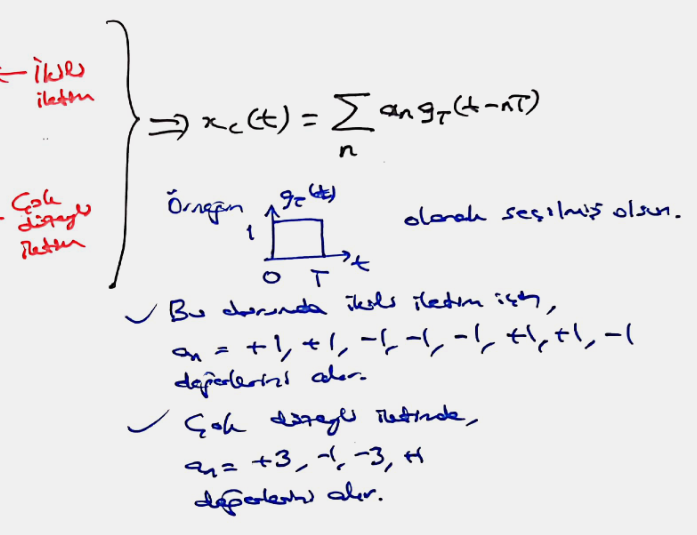 ← İkili
iletim
⇒ x_c(t) = Σ_n a_n g_T(t-nT)
Çok
düzeyli
iletim
Örneğin g_T(t) olarak seçilmiş olsun.
1
t
0 T
✓ Bu durumda ikili iletim için,
a_n = +1, +1, -1, -1, -1, +1, +1, -1
değerlerini alır.
✓ Çok düzeyli iletimde,
a_n = +3, -1, -3, +1
değerlerini alır.